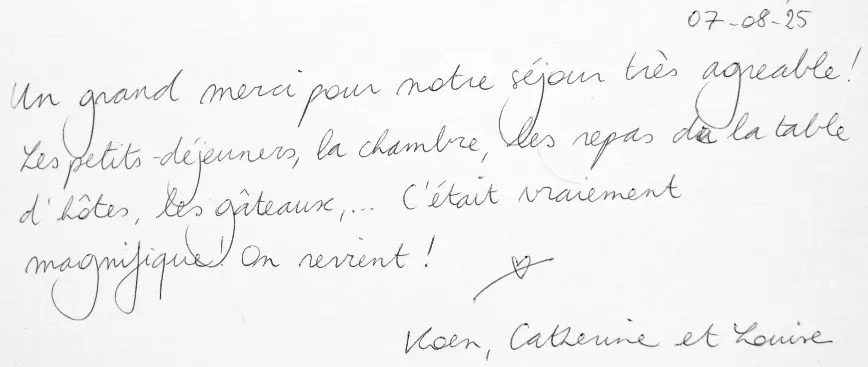 07-08-25
Un grand merci pour notre séjour très agreable!
Les petits-déjeuners, la chambre, les repas de la table
d'hôtes, les gâteaux,... C'était vraiment
magnifique! On revient!
Koen, Catherine et Louise